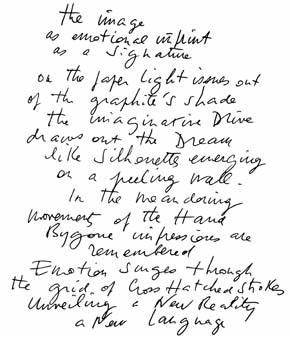 the image
as emotional imprint
as a Signature
on the paper light issues out
of the graphite's shade
the imaginative Drive
draws out the Dream
like silhouette emerging
on a peeling wall.
In the meandering
movement of the Hand
Bygone impressions are
remembered
Emotion surges through
the grid of Cross Hatched Strokes
Unveiling a New Reality
a New Language